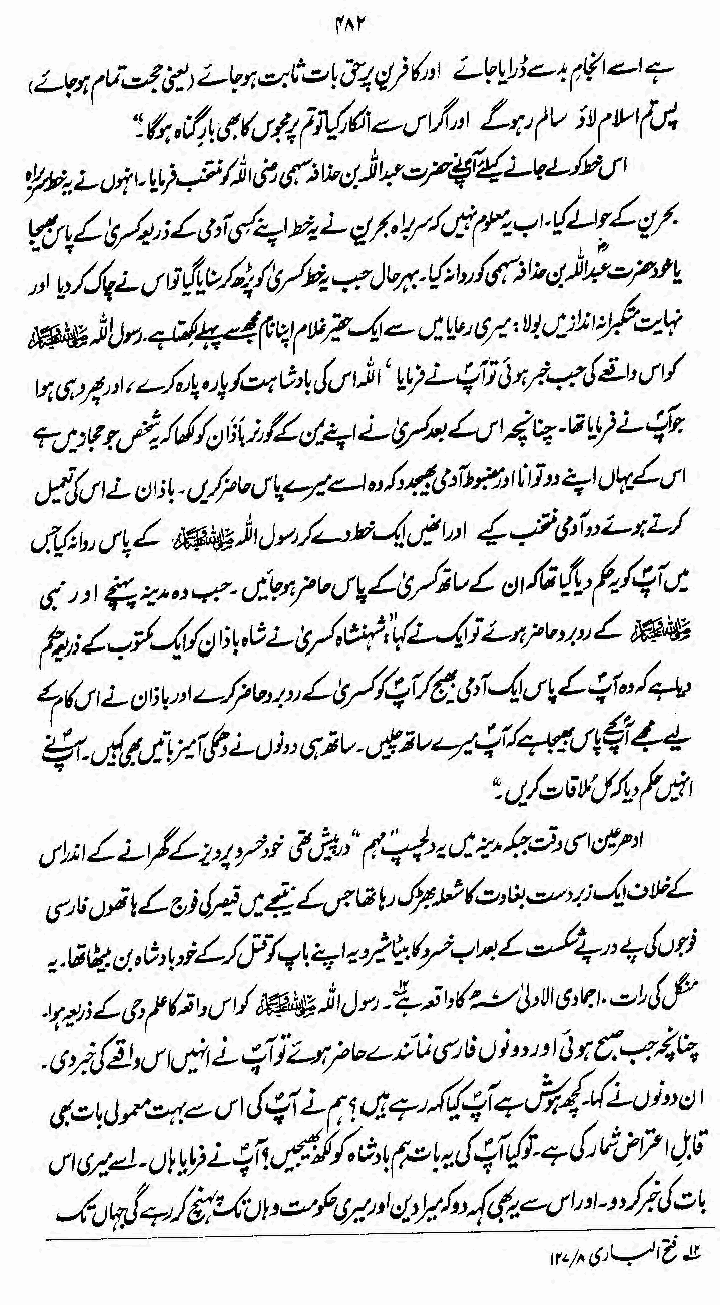 ۴۸۲
ہے اسے انجام بد سے ڈرایا جائے اور کافرین پر حق بات ثابت ہو جائے (یعنی حجت تمام ہو جائے)
پس تم اسلام لاؤ سالم رہو گے اور اگر اس سے انکار کیا تو تم پر مجوس کا بھی بارِ گناہ ہوگا۔"
اس خط کو لے جانے کیلئے آپؐ نے حضرت عبداللہ بن حذافہ سہمی رضی اللہ کو منتخب فرمایا۔ انہوں نے یہ خط سربراہ
بحرین کے حوالے کیا۔ اب یہ معلوم نہیں کہ سربراہ بحرین نے یہ خط اپنے کسی آدمی کے ذریعہ کسریٰ کے پاس بھیجا
یا خود حضرت عبداللہ بن حذافہ سہمیؓ کو روانہ کیا۔ بہرحال جب یہ خط کسریٰ کو پڑھ کر سنایا گیا تو اس نے چاک کر دیا اور
نہایت متکبرانہ انداز میں بولا: میری رعایا میں سے ایک حقیر غلام اپنا نام مجھ سے پہلے لکھتا ہے۔ رسول اللہ ﷺ
کو اس واقعے کی جب خبر ہوئی تو آپؐ نے فرمایا ' اللہ اس کی بادشاہت کو پارہ پارہ کرے، اور پھر وہی ہوا
جو آپؐ نے فرمایا تھا۔ چنانچہ اس کے بعد کسریٰ نے اپنے یمن کے گورنر باذان کو لکھا کہ یہ شخص جو حجاز میں ہے
اس کے یہاں اپنے دو توانا اور مضبوط آدمی بھیجدو کہ وہ اسے میرے پاس حاضر کریں۔ باذان نے اس کی تعمیل
کرتے ہوئے دو آدمی منتخب کیے اور انھیں ایک خط دے کر رسول اللہ ﷺ کے پاس روانہ کیا جس
میں آپؐ کو یہ حکم دیا گیا تھا کہ ان کے ساتھ کسریٰ کے پاس حاضر ہو جائیں۔ جب وہ مدینہ پہنچے اور نبی
ﷺ کے روبرو حاضر ہوئے تو ایک نے کہا: "شہنشاہ کسریٰ نے شاہ باذان کو ایک مکتوب کے ذریعہ حکم
دیا ہے کہ وہ آپؐ کے پاس ایک آدمی بھیج کر آپؐ کو کسریٰ کے روبرو حاضر کرے اور باذان نے اس کام کے
لیے مجھے آپؐ کے پاس بھیجا ہے کہ آپؐ میرے ساتھ چلیں۔ ساتھ ہی دونوں نے دھمکی آمیز باتیں بھی کہیں۔ آپؐ نے
انہیں حکم دیا کہ کل ملاقات کریں۔"
ادھر عین اسی وقت جبکہ مدینہ میں یہ دلچسپ "مہم" درپیش تھی خود خسرو پرویز کے گھرانے کے اندر اس
کے خلاف ایک زبردست بغاوت کا شعلہ بھڑک رہا تھا جس کے نتیجے میں قیصر کی فوج کے ہاتھوں فارسی
فوجوں کی پے در پے شکست کے بعد اب خسرو کا بیٹا شیرویہ اپنے باپ کو قتل کر کے خود بادشاہ بن بیٹھا تھا۔ یہ
منگل کی رات ۱۰ جمادی الاولیٰ ۷ھ کا واقعہ ہے۱۲۔ رسول اللہ ﷺ کو اس واقعہ کا علم وحی کے ذریعہ ہوا۔
چنانچہ جب صبح ہوئی اور دونوں فارسی نمائندے حاضر ہوئے تو آپؐ نے انہیں اس واقعے کی خبر دی۔
ان دونوں نے کہا۔ کچھ ہوش ہے آپؐ کیا کہہ رہے ہیں؟ ہم نے آپؐ کی اس سے بہت معمولی بات بھی
قابل اعتراض شمار کی ہے۔ تو کیا آپؐ کی یہ بات ہم بادشاہ کو لکھ بھیجیں؟ آپؐ نے فرمایا ہاں۔ اسے میری اس
بات کی خبر کر دو۔ اور اس سے یہ بھی کہہ دو کہ میرا دین اور میری حکومت وہاں تک پہنچ کر رہے گی جہاں تک
۱۲ فتح الباری ۸/۱۲۷